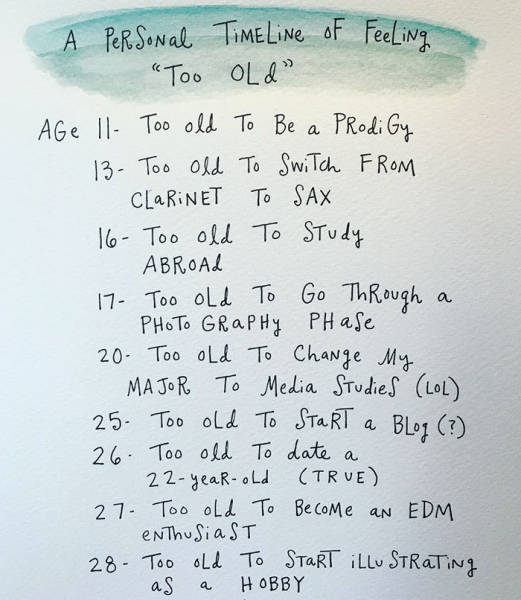 A PERSONAL TIMELINE OF FEELING
"TOO OLD"
AGE 11- TOO OLD TO BE A PRODIGY
13- TOO OLD TO SWITCH FROM
CLARINET TO SAX
16- TOO OLD TO STUDY
ABROAD
17- TOO OLD TO GO THROUGH A
PHOTOGRAPHY PHASE
20- TOO OLD TO CHANGE MY
MAJOR TO MEDIA STUDIES (LOL)
25- TOO OLD TO START A BLOG (?)
26- TOO OLD TO DATE A
22-YEAR-OLD (TRUE)
27- TOO OLD TO BECOME AN EDM
ENTHUSIAST
28- TOO OLD TO START ILLUSTRATING
AS A HOBBY